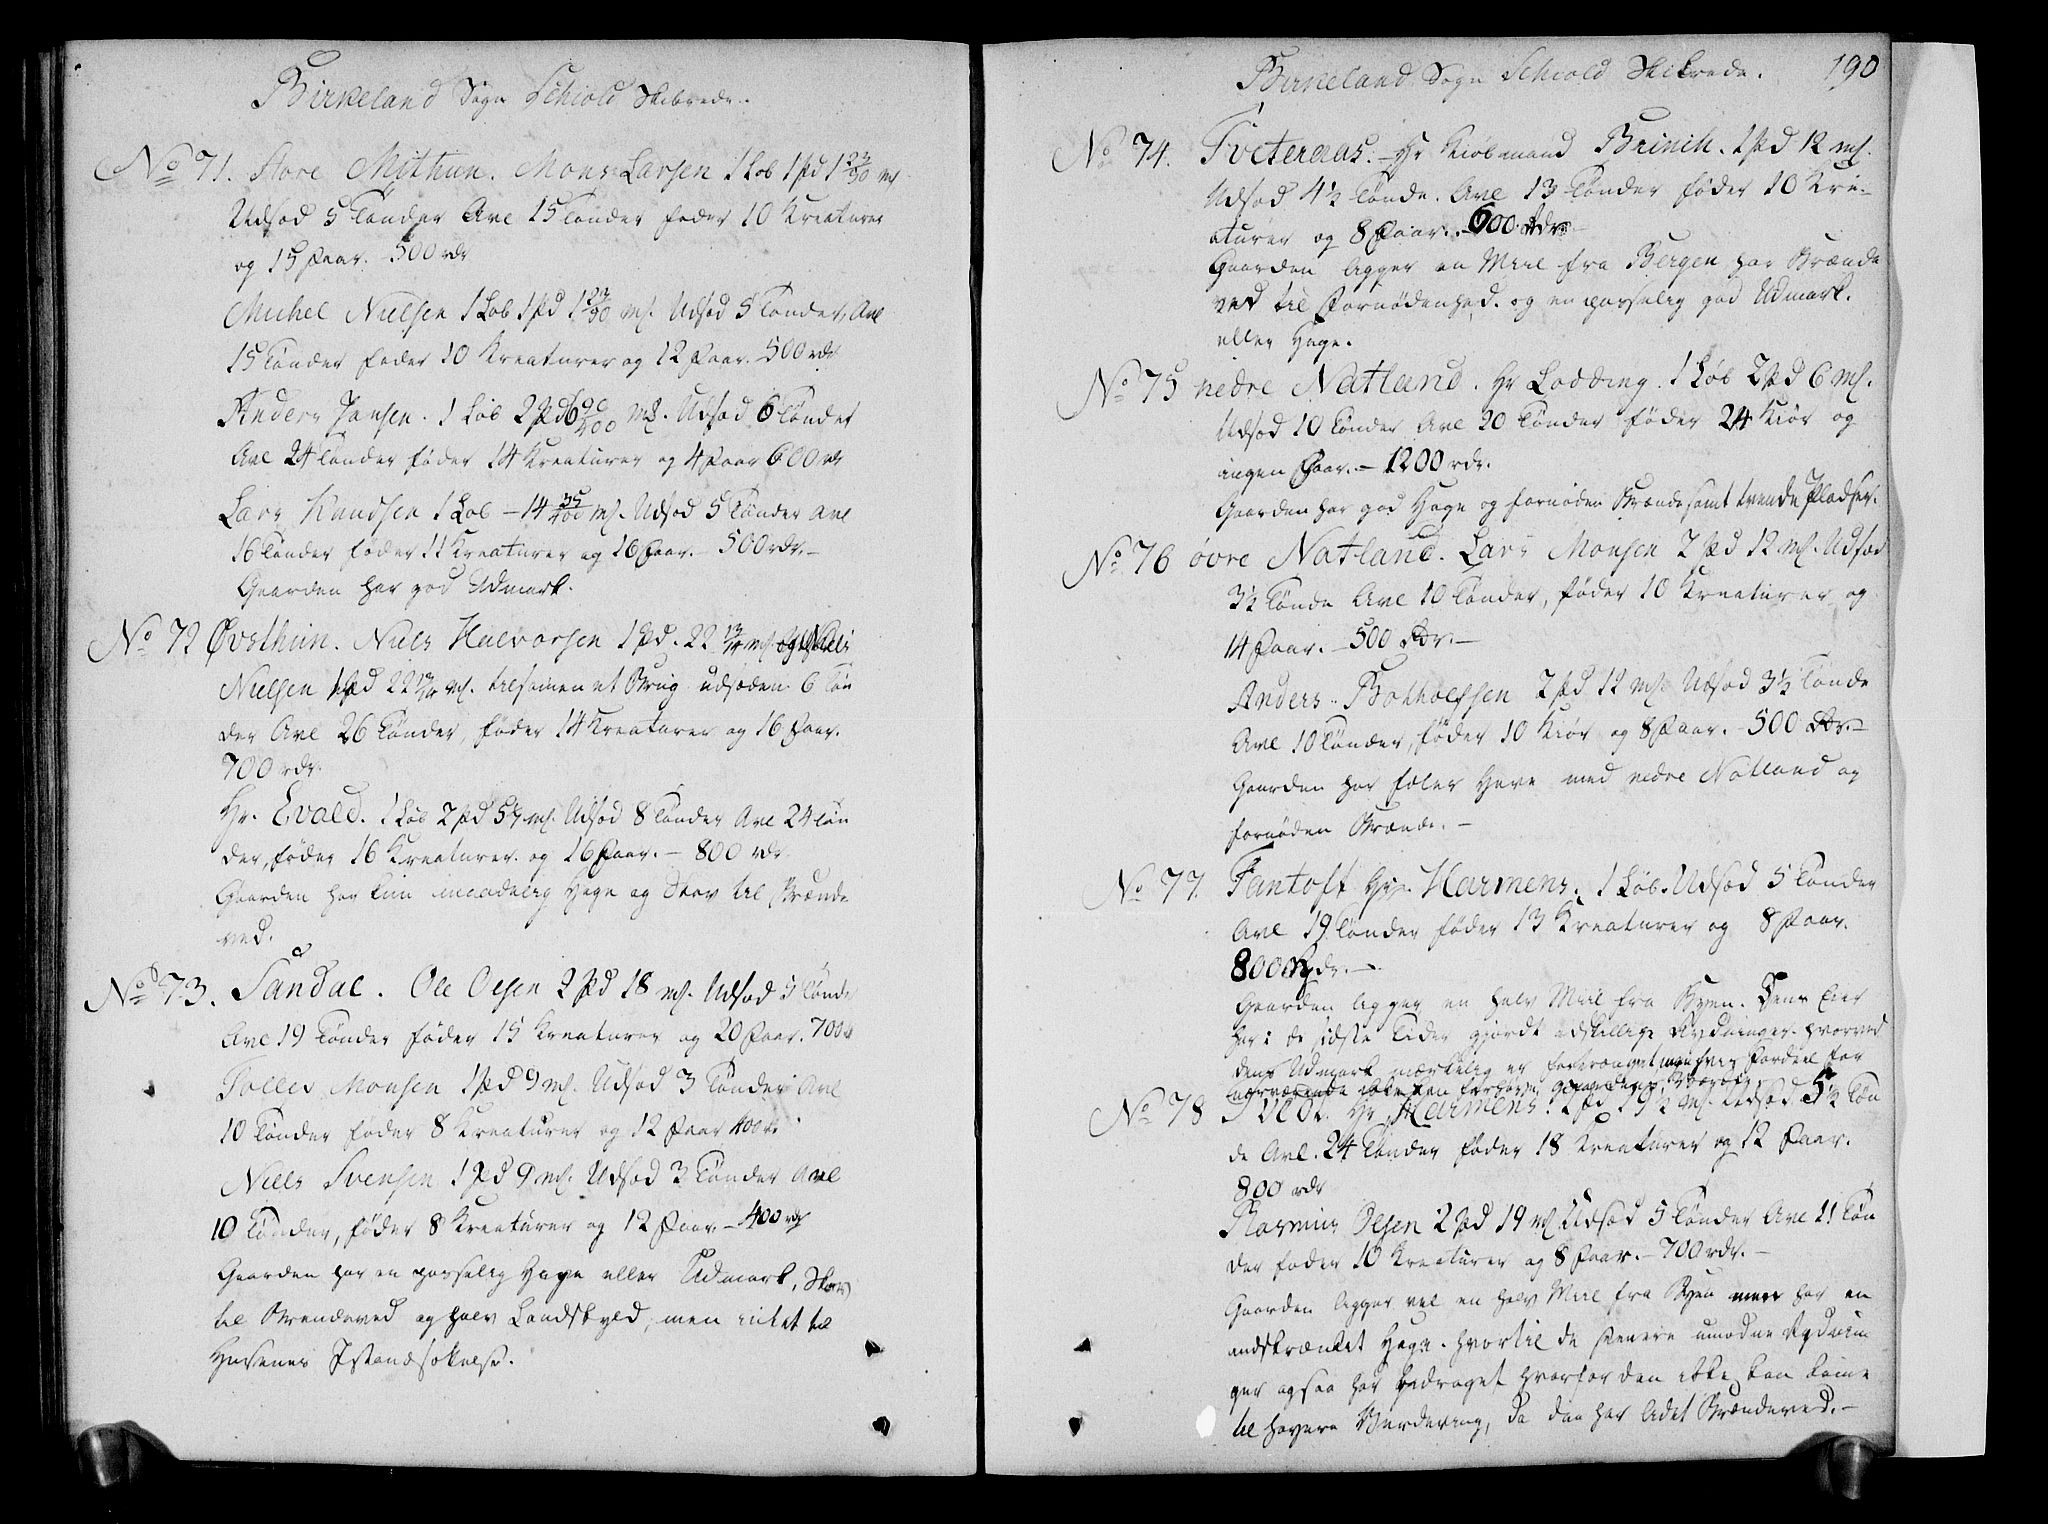 Birkeland Sogn Schiold Skibrede.
No 71. Store Mithun. Mons Larsen 1 Lob 1 Pd 1 23/30 mk
Udsød 5 Tønder Avl 15 Tønder føder 10 Kreaturer
og 15 Faar. 500 rdr
Michel Nielsen 1 Lob 1 Pd 1 23/30 mk. Udsød 5 Tønder, Avl
15 Tønder føder 10 Kreaturer og 12 Faar. 500 rdr
Anders Jansen. 1 Løb 2 Pd mk. Udsød 6 Tønder
Avl 24 Tønder føder 14 Kreaturer og 4 Faar 600 rdr
Lars Knudsen 1 Lob – 14 mk. Udsød 5 Tønder avl
16 Tønder føder 11 Kreaturer og 16 Faar. – 500 rdr. –
Gaarden har god Udmark.
No 72 Øvsthun. Niels Halvorsen 1 Pd. 22 mk og Niels
Nielsen 1 Pd 22 mk. tilsamen et Brug udsøden 6 Tøn
der Avl 26 Tønder, føder 14 Kreaturer og 16 Faar.
700 rdr.
Hr. Evald. 1 Løb 2 Pd mk. Udsød 8 Tønder Avl 24 Tøn
der, føder 16 Kreaturer. og 16 Faar. – 800 rdr.
Gaarden har kun maadelig Hage og Skov til Brænde
ved.
No 73. Sandal. Ole Olsen 2 Pd 18 mk. Udsød 5 Tønde
Avl 19 Tønder føder 15 Kreaturer og 20 Faar. 700 rdr
Tollev Monsen 1 Pd 9 mk. Udsød 3 Tønder Avl
10 Tønder føder 8 Kreaturer og 12 Faar 400 rdr.
Niels Svensen 1 Pd 9 mk. Udsød 3 Tønder Avl
10 Tønder, føder 8 Kreaturer og 12 Faar – 400 rdr
Gaarden har en passelig Hage eller Udmark, Skov
til Brendeved og halv Landskyld, men intet til
Husenes Istandsøkelse.
Birkeland Sogn Schiold Skibrede. 190
No 74. Tveteraas. – Hr Kiøbmand Brinch. 1 Pd 12 mk.
Udsød 4½ Tønde. Avl 13 Tønder føder 10 Kre-
aturer og 8 Faar. – 600 rdr
Gaarden ligger en Miil fra Bergen har Brænde
ved til Fornødenhed. og en passelig god Udmark.
eller Hage.
No 75 nedre Natland. Hr Lodding. 1 Løb 2 Pd 6 mk.
Udsød 10 Tønder Avl 30 Tønder føder 24 Kiør og
ingen Faar. – 1200 rdr.
Gaarden har god Hage og fornøden Brænde samt trende Pladser.
No 76 øvre Natland. Lars Monsen 2 Pd 12 mk. Udsød
3½ Tønde Avl 10 Tønder, føder 10 Kreaturer og
14 Faar. – 500 rdr. –
Anders Botholfsen 2 Pd 12 mk. Udsød 3½ Tønde
Avl 10 Tønder, føder 10 Kiør og 8 Faar. 500 rdr. –
Gaarden har fæles Have med nedre Natland og
fornøden Brænde. –
No 77. Fantoft Hr. Harmens. 1 Løb. Udsød 5 Tønder
Avl 19 Tønder føder 13 Kreaturer og 8 Faar.
800 rdr. –
Gaarden ligger en halv Miil fra Byen. Dens Eier
har i de sidste Tider gjordt adskillige Rydninger hvorved
dens Udmark mærkelig er forbronget Fordeel for
nærværende ikke kan forhøye Gaardens Værdie
No 78 Hr. Harmens. 2 Pd 19½ mk Udsød 5½ Tøn
de Avl. 24 Tønder føder 18 Kreaturer og 12 Faar.
800 rdr
Rasmus Olsen 2 Pd 19 mk. Udsød 5 Tønder Avl 21 Tøn
der føder 10 Kreaturer og 8 Faar. – 700 rdr. –
Gaarden ligger vel en halv Miil fra Byen men har en
indskrænket Hage. hvortil de senere umodne Rydnin
ger ogsaa har bidraget hvorfor den ikke kan komme
til høyere Vurdering, da den har lidet Brændeved. –